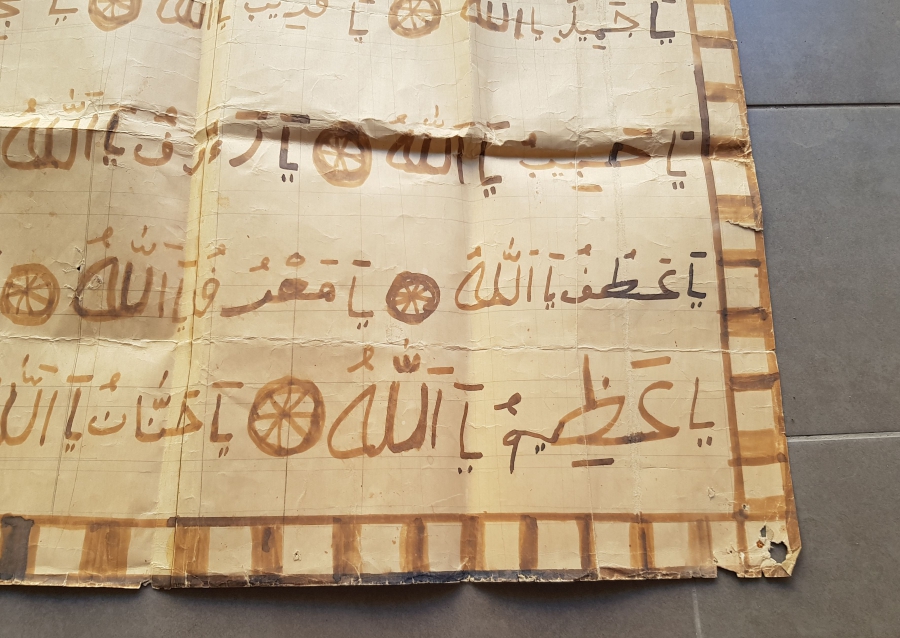 يَا جَمِيلُ يَا اَللَّهُ يَا قَرِيبُ يَا
يَا حَبِيبُ يَا اَللَّهُ يَا رَءُوفُ يَا اَللَّهُ
يَا عَطُفُ يَا اَللَّهُ يَا مَعْرُ فُ يَا اَللَّهُ
يَا عَظِيمُ يَا اَللَّهُ يَا حَنَّانُ يَا اَللَّهُ